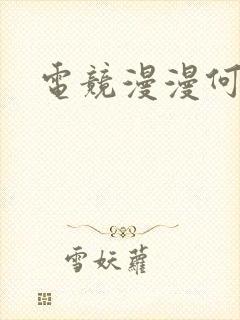 電競漫漫何
雪妖蘿